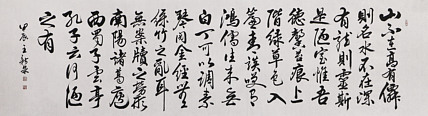 山不在高有僊
則名水不在深
有龍則靈斯
是陋室惟吾
德馨苔痕上
階綠草色入
簾青談笑有
鴻儒往來無
白丁可以調素
琴閱金經無
絲竹之亂耳
無案牘之勞形
南陽諸葛廬
西蜀子雲亭
孔子云何陋
之有
甲辰王